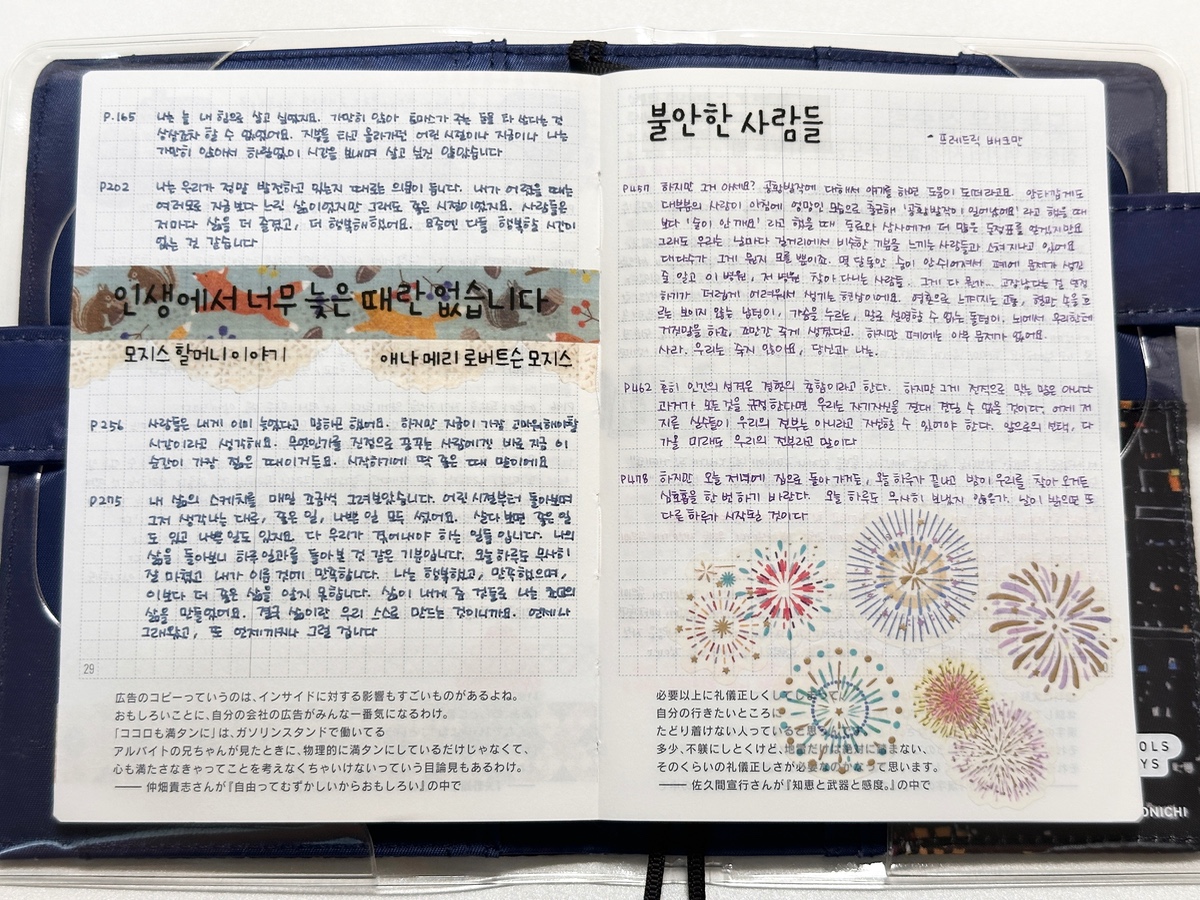 P.165 나는 늘 내 힘으로 살고 싶었지요. 가만히 앉아 토마스가 주는 돈을 타 쓴다는 건
상상조차 할 수 없었어요. 지붕을 타고 올라가던 어린 시절이나 지금이나 나는
가만히 앉아서 하릴없이 시간을 보내며 살고 싶진 않았습니다
P202 나는 우리가 정말 발전하고 있는지 때로는 의문이 듭니다. 내가 어렸을 때는
여러모로 지금보다 느린 삶이었지만 그래도 좋은 시절이었지요. 사람들은
저마다 삶을 더 즐겼고, 더 행복해했어요. 요즘엔 다들 행복할 시간이
없는 것 같습니다
인생에서 너무 늦은 때란 없습니다
모지스 할머니 이야기 애나 메리 로버트슨 모지스
P256 사람들은 내게 이미 늦었다고 말하곤 했어요. 하지만 지금이 가장 고마워해야할
시간이라고 생각해요. 무엇인가를 진정으로 꿈꾸는 사람에겐 바로 지금 이
순간이 가장 젊은 때이거든요. 시작하기에 딱 좋은 때 말이에요
P275 내 삶의 스케치를 매일 조금씩 그려보았습니다. 어린 시절부터 돌아보며
그저 생각나는 대로, 좋은 일, 나쁜 일 모두 썼어요. 살다 보면 좋은 일
도 있고 나쁜 일도 있지요. 다 우리가 겪어내야 하는 일들입니다. 나의
삶을 돌아보니 하루 일과를 돌아본 것 같은 기분입니다. 오늘 하루도 무사히
잘 마쳤고 내가 이룬 것에 만족합니다. 나는 행복했고, 만족했으며,
이보다 더 좋은 삶을 알지 못합니다. 삶이 내게 준 것들로 나는 최고의
삶을 만들었어요. 결국 삶이란 우리 스스로 만드는 것이니까요. 언제나
그래왔고, 또 언제까지나 그럴 겁니다
29
広告のコピーっていうのは、インサイドに対する影響もすごいものがあるよね。
おもしろいことに、自分の会社の広告がみんな一番気になるわけ。
「ココロも満タンに」は、ガソリンスタンドで働いてる
アルバイトの兄ちゃんが見たときに、物理的に満タンにしているだけじゃなくて、
心も満たさなきゃってことを考えなくちゃいけないっていう目論見もあるわけ。
—— 仲畑貴志さんが『自由ってむずかしいからおもしろい』の中で
불안한 사람들
- 프레드릭 배크만
P457 하지만 그거 아세요? 공황발작에 대해서 얘기를 하면 도움이 되더라고요. 안타깝게도
대부분의 사람이 아침에 엉망인 모습으로 출근해 '공황발작이 일어났어요' 라고 했을 때
보다 '술이 안 깨요' 라고 했을 때 동료와 상사에게 더 많은 동정표를 얻겠지만요
그래도 우리는 날마다 길거리에서 비슷한 기분을 느끼는 사람들과 스쳐지나고 있어요
대다수가 그게 뭔지 모를 뿐이죠. 몇 달 동안 숨이 안 쉬어져서 폐에 문제가 생긴
줄 알고 이 병원, 저 병원 찾아 다니는 사람들. 그게 다 뭔가... 고장났다는 걸 인정
하기가 더럽게 어려워서 생기는 현상이에요. 영혼으로 느껴지는 고통, 혈관 속을 흐
르는 보이지 않는 납덩이, 가슴을 누르는, 말로 설명할 수 없는 돌덩이. 뇌에서 우리한테
거짓말을 하죠, 조만간 죽게 생겼다고. 하지만 폐에는 아무 문제가 없어요.
사라. 우리는 죽지 않아요, 당신과 나는.
P462 흔히 인간의 성격은 경험의 총합이라고 한다. 하지만 그게 전적으로 맞는 말은 아니다
과거가 모든 것을 규정한다면 우리는 자기자신을 절대 견딜 수 없을 것이다. 어제 저
지른 실수들이 우리의 전부는 아니라고 자신할 수 있어야 한다. 앞으로의 선택, 다
가올 미래도 우리의 전부라고 말이다
P478 하지만 오늘 저녁에 집으로 돌아가거든, 오늘 하루가 끝나고 밤이 우리를 찾아오거든
심호흡을 한 번 하기 바란다. 오늘 하루도 무사히 보냈지 않은가. 날이 밝으면 또
다른 하루가 시작될 것이다
必要以上に礼儀正しくしてしまって、
自分の行きたいところに
たどり着けない人っていると思うんです。
多少、不躾にしとくけど、地雷だけは絶対に踏まない、
そのくらいの礼儀正しさが必要なのかなって思います。
—— 佐久間宣行さんが『知恵と武器と感度。』の中で
OLS
YS
ONICHI